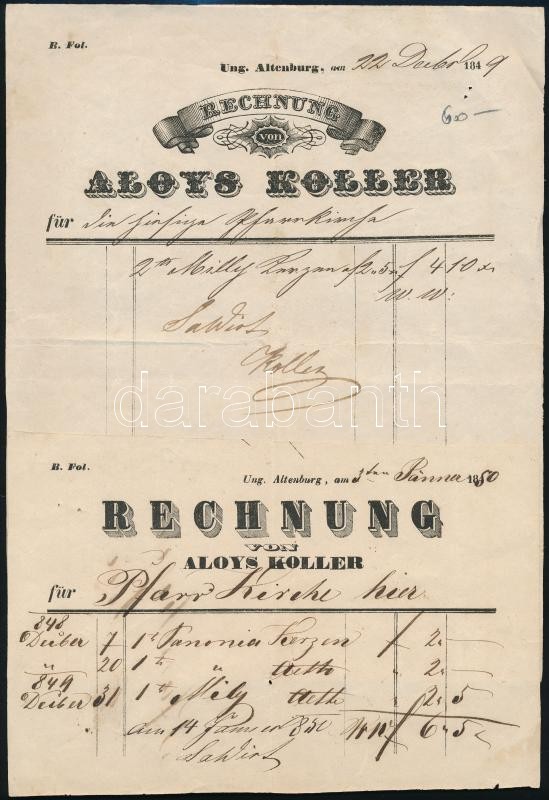 B. Fol.
Ung. Altenburg, am 22 Decbr 1849
RECHNUNG
60 —
von
ALOYS KOLLER
für die hiesige Pfarrkirche
2 ℔ Milly Kerzen a f 2.5 x f 4 10 x
W. W:
Saldirt
Koller
darabanth
B. Fol.
Ung. Altenburg, am 3ten Jänner 1850
RECHNUNG
VON
ALOYS KOLLER
für Pfarr Kirche hier
848
Decber 7 1 ℔ Panonia Kerzen f 2 —
" 20 1 ℔ " detto " 2 —
849
Decber 31 1 ℔ Mily detto " 2 5
am 14 Jänner 850 f 6 5
Saldirt